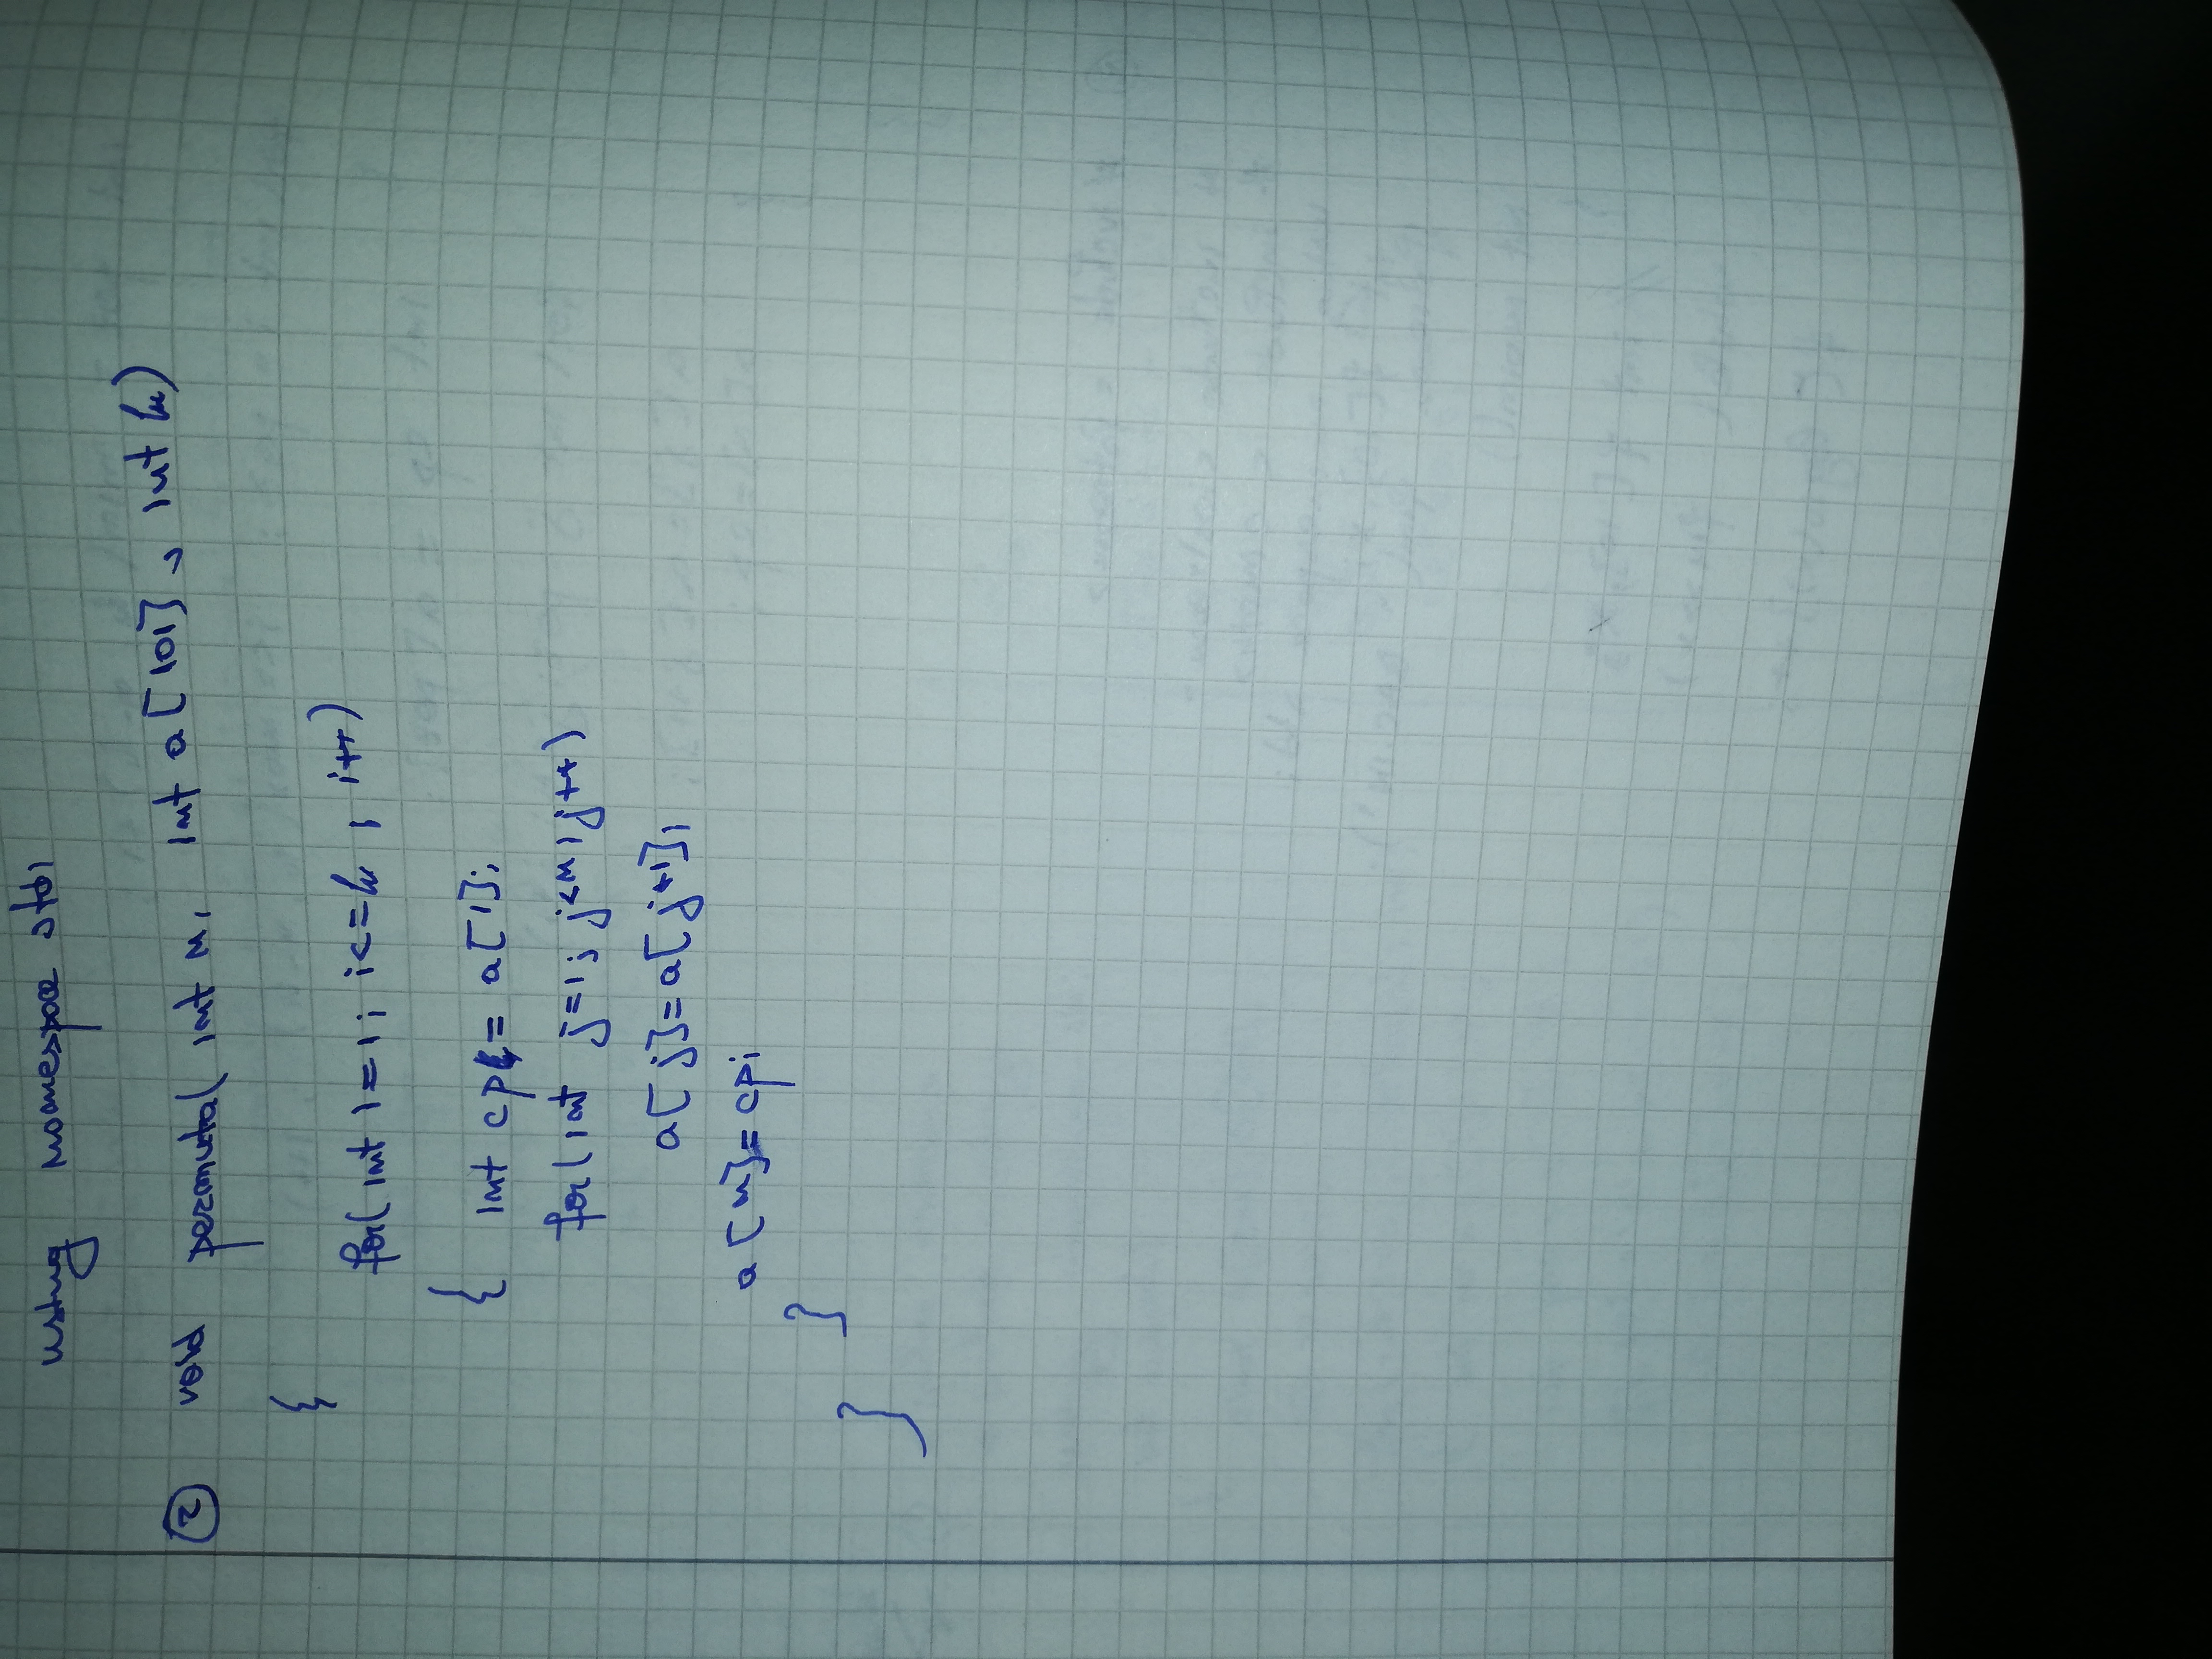 using namespace std;
② void permuta( int n, int a[101], int k)
{
for( int i=1; i<=k ; i++)
{ int cp = a[1];
for( int j=1; j<n; j++)
a[j]=a[j+1];
a[n]=cp;
}
}